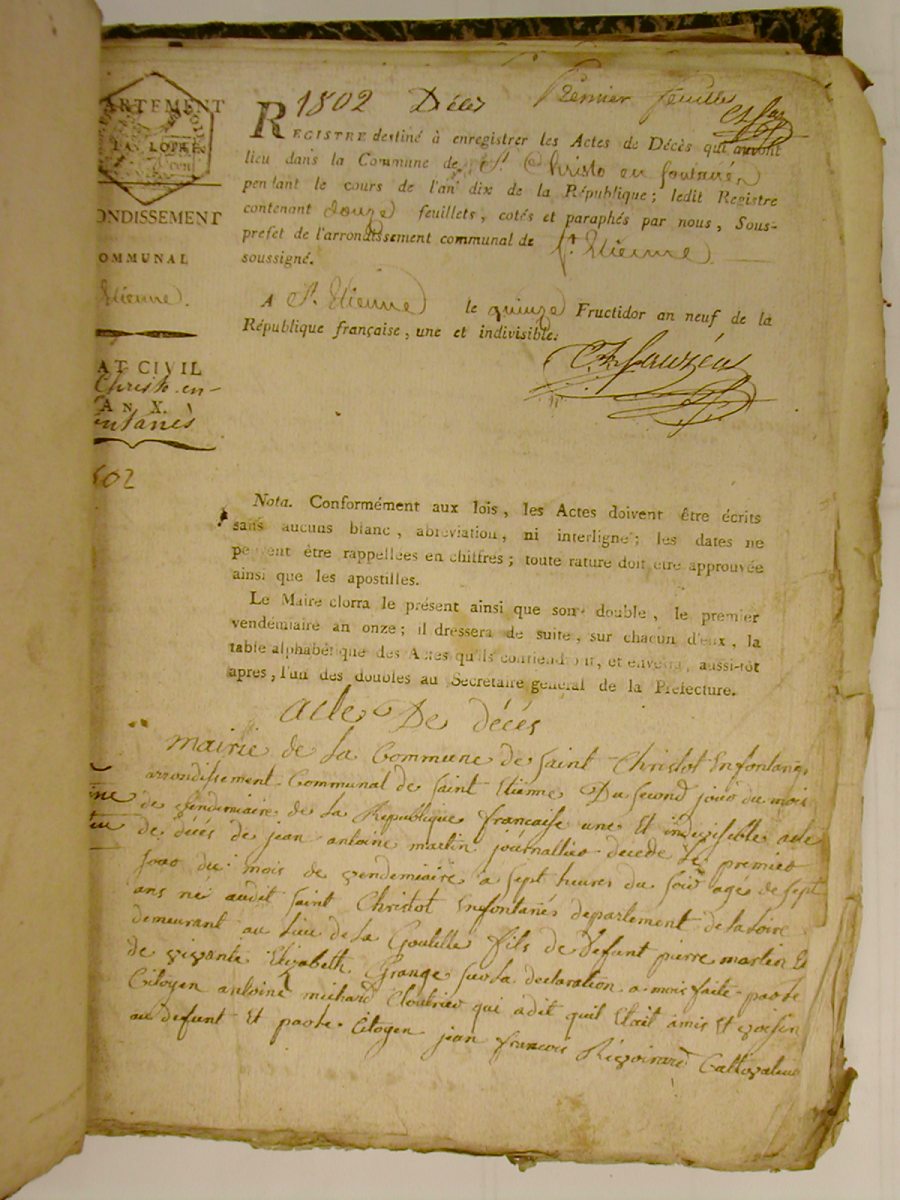 1802 Décès Premier feuille
ARTEMENT
REGISTRE destiné à enregistrer les Actes de Décès qui auront
lieu dans la Commune de St Christo en fontanés
pendant le cours de l'an dix de la République; ledit Registre
contenant douze feuillets, cotés et paraphés par nous, Sous-
prefet de l'arrondissement communal de St Etienne
soussigné.
ONDISSEMENT
OMMUNAL
Etienne.
A St Etienne le quinze Fructidor an neuf de la
République française, une et indivisible.
AT CIVIL
Christo-en-
AN X.
ntanès
802
Nota. Conformément aux lois, les Actes doivent être écrits
sans aucuns blanc, abreviation, ni interligne; les dates ne
peuvent être rappellées en chiffres; toute rature doit être approuvée
ainsi que les apostilles.
Le Maire clorra le présent ainsi que son double, le premier
vendémiaire an onze; il dressera de suite, sur chacun d'eux, la
table alphabétique des Actes qu'ils contiendront, et enverra, aussi-tôt
apres, l'un des doubles au Secrétaire général de la Préfecture.
acte De décés
mairie de La Commune de Saint Christot Enfontanés
arrondissement Communal de Saint Etienne Du Second jour du mois
de vendemiaire de La Republique francaise une Et indivisible acte
de décés de jean antoine martin journallier decede Le premier
jour du mois de vendemiaire a sept heures du soir agé de sept
ans né audit Saint Christot Enfontanés departement de la Loire
demeurant au Lieu de La Goutelle fils de defunt pierre martin Et
de vivante Elizabeth Grange sur La declaration a mois faite par le
Citoyen antoine michard Cloutrier qui a dit quil Etait amis Et voisin
au defunt Et par le Citoyen jean francois Rivoirard